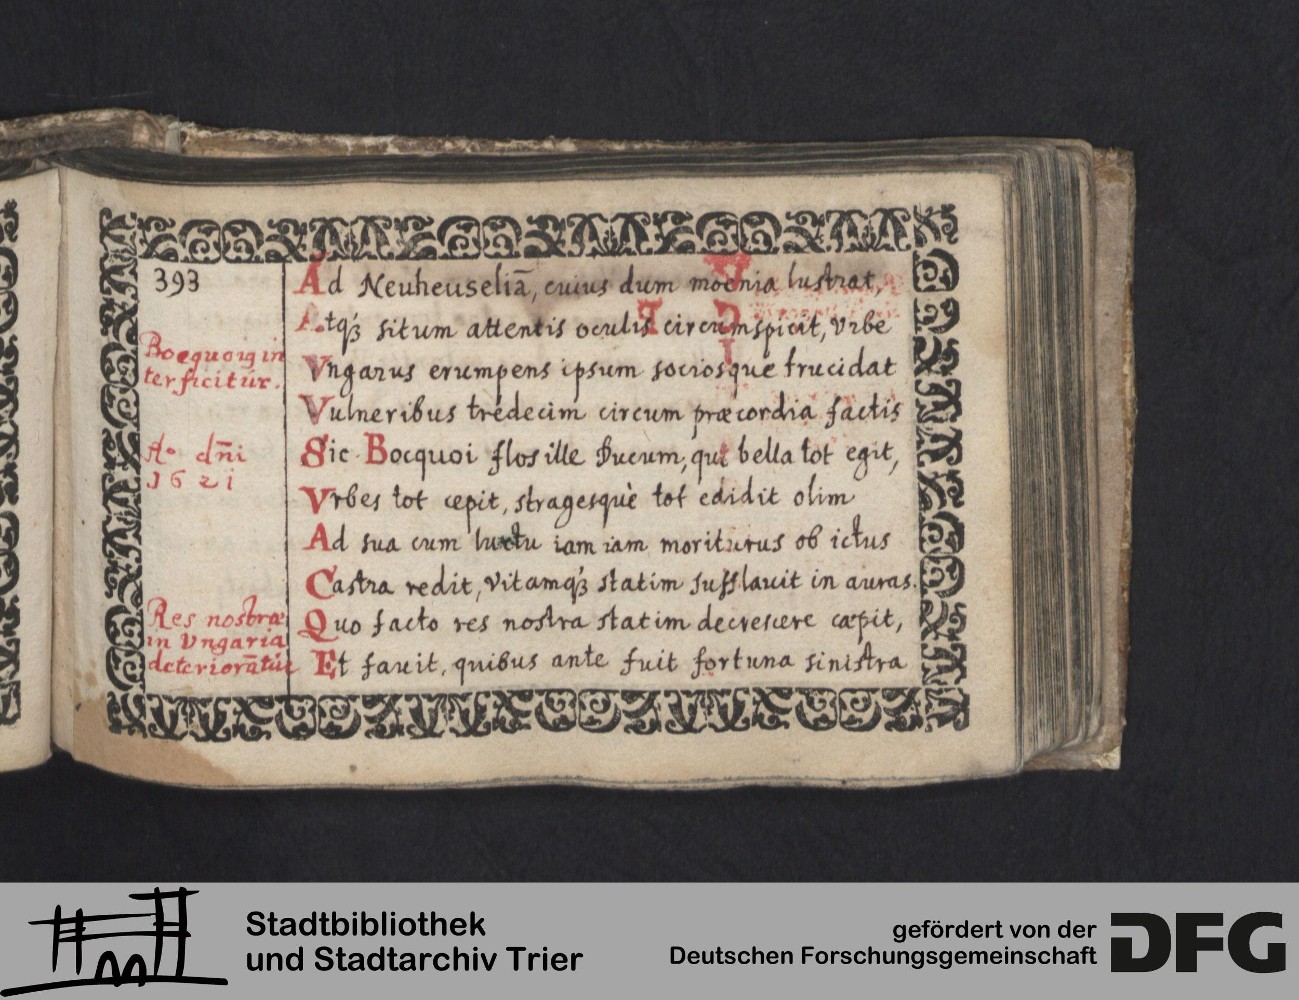 393
Ad Neuheuseliā, cuius dum moenia lustrat,
Atqꝫ situm attentis oculis circumspicit, Vrbe
Vngarus erumpens ipsum sociosque trucidat
Vulneribus tredecim circum præcordia factis
Sic Bocquoi flos ille Ducum, qui bella tot egit,
Vrbes tot cepit, stragesquè tot edidit olim
Ad sua cum luctu iam iam moriturus ob ictus
Castra redit, Vitamqꝫ statim sufflauit in auras.
Quo facto res nostra statim decrescere cæpit,
Et fauit, quibus ante fuit fortuna sinistra
Bocquoig in
terficitúr.
Ao dn̄i
1621
Res nostræ
in Vngaria
deteriorātúr
Stadtbibliothek
und Stadtarchiv Trier
gefördert von der
Deutschen Forschungsgemeinschaft
DFG